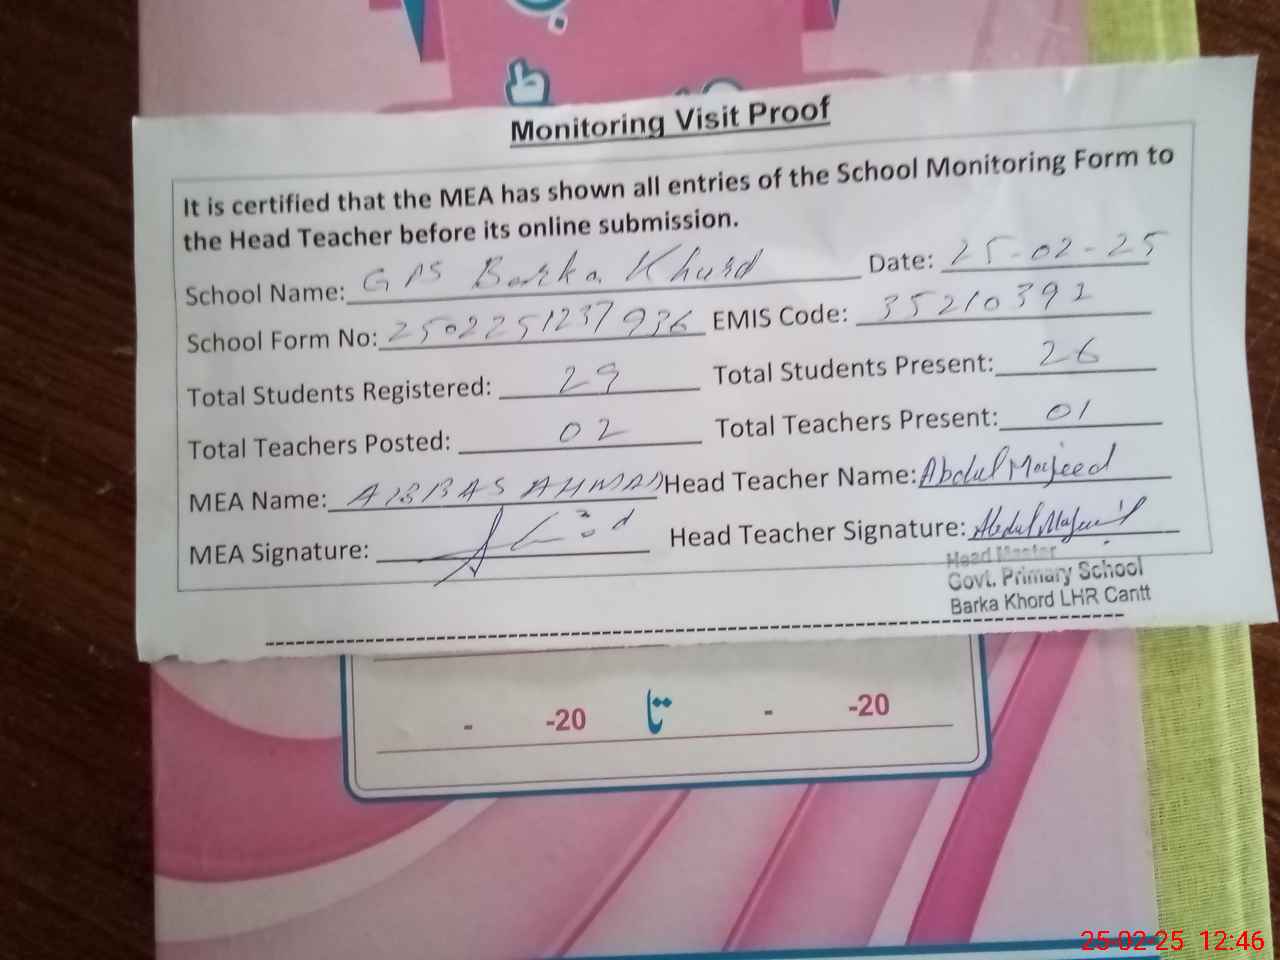 Monitoring Visit Proof
It is certified that the MEA has shown all entries of the School Monitoring Form to
the Head Teacher before its online submission.
School Name: GPS Barka Khurd Date: 25-02-25
School Form No: 2502251237936 EMIS Code: 35210391
Total Students Registered: 29 Total Students Present: 26
Total Teachers Posted: 02 Total Teachers Present: 01
MEA Name: ABBAS AHMAD Head Teacher Name: Abdul Majeed
MEA Signature: Head Teacher Signature: Abdul Majeed
Head Master
Govt. Primary School
Barka Khord LHR Cantt
- -20 تا - -20
25-02-25 12:46